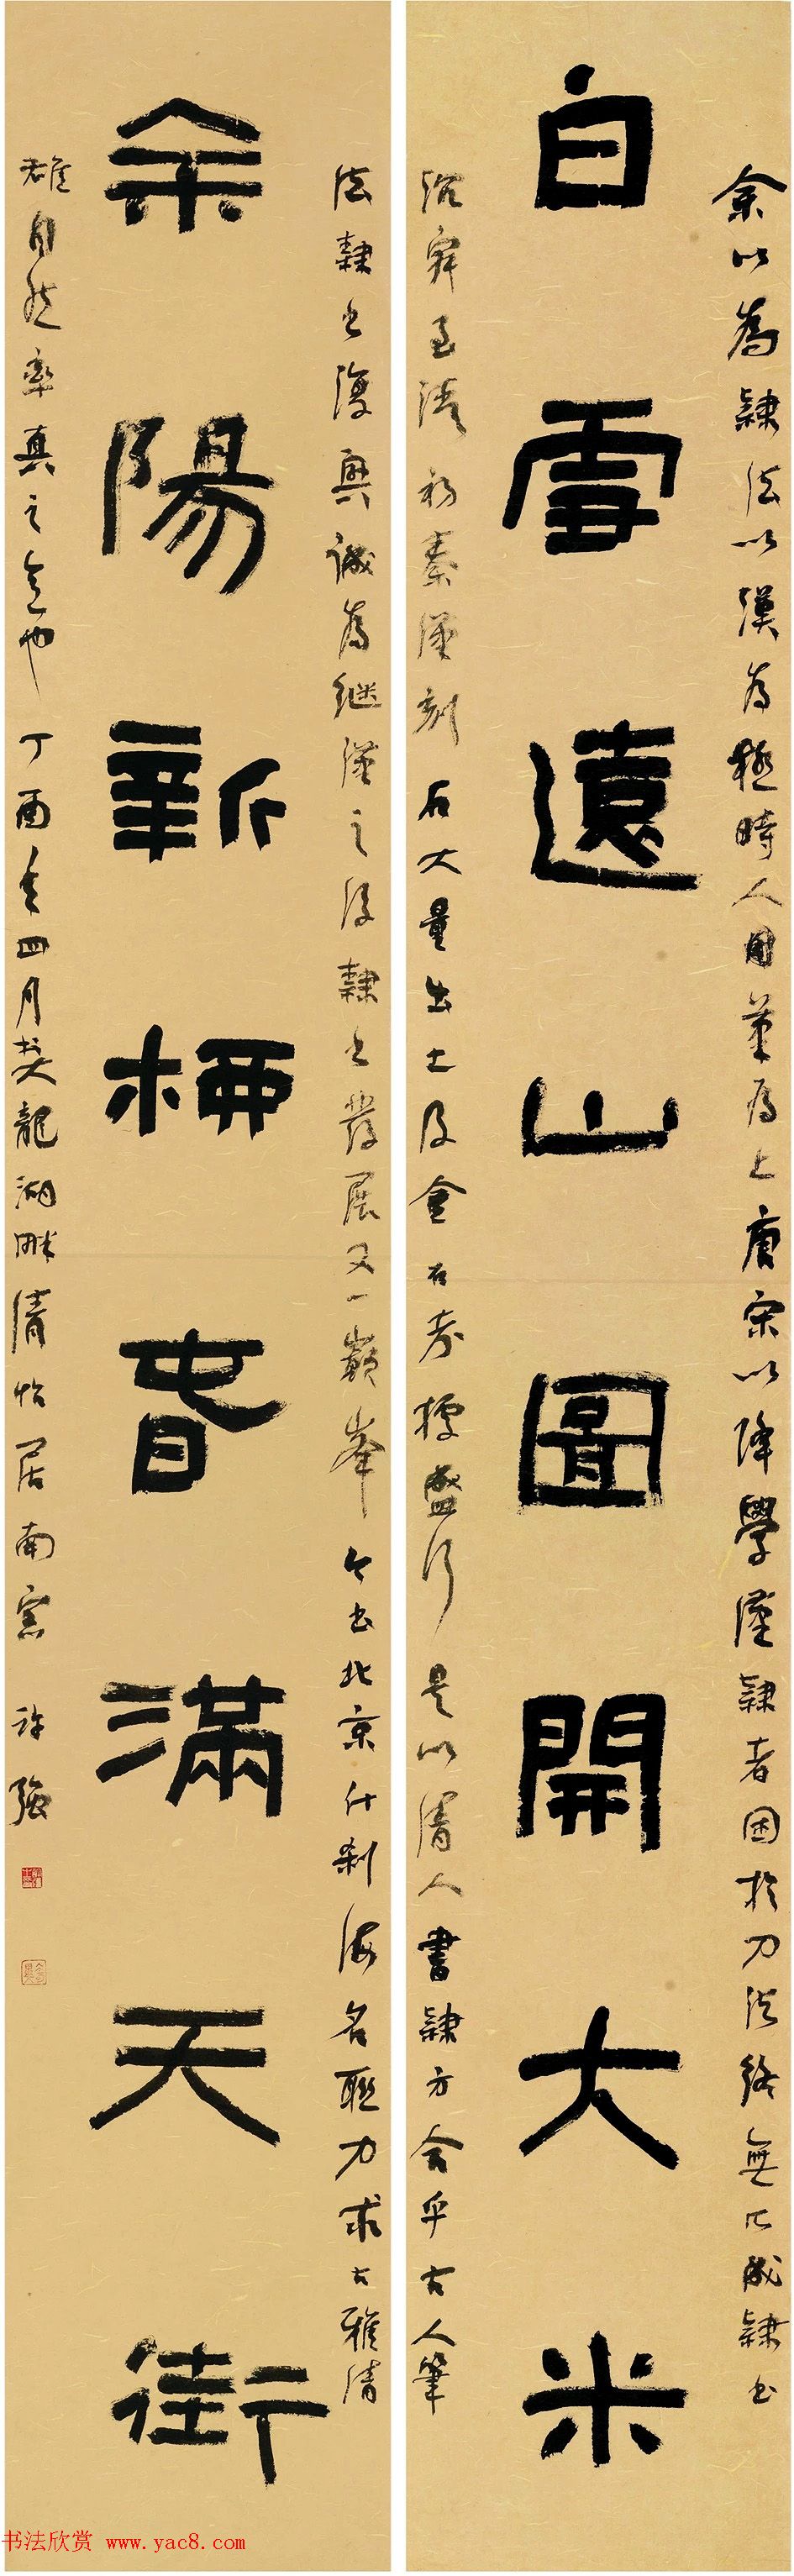 余以為隸法以漢為極時人用筆為上唐宋以降學漢隸者困於刀法終無以成隸書
白雪遠山圖開大米
殆寂至清初秦漢刻石大量出土及金石考據盛行是以清人書隸方合乎古人筆
法隸書復興誠為繼漢之後隸書發展又一巔峯今書北京什刹海名聯力求古雅清
余陽新柳春滿天街
雄自然率真之意也丁酉年四月於大龍湖畔清怡居南窗許強
书法欣赏 www.yac8.com